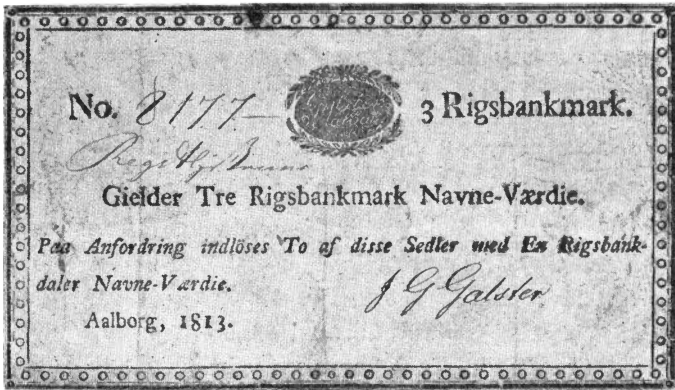 No. 8177 3 Rigsbankmark.
Gielder Tre Rigsbankmark Navne-Værdie.
Paa Anfordring indlöses To af disse Sedler med En Rigsbank-
daler Navne-Værdie.
J G Galster
Aalborg, 1813.